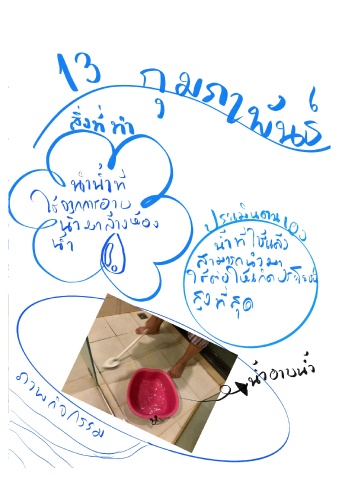 13 กุมภาพันธ์
สิ่งที่ทำ
นำน้ำที่
ใช้จากการอาบ
น้ำมาล้างห้อง
น้ำ
ประเมินตนเอง
น้ำที่ใช้แล้ว
สามารถนำมา
ใช้ต่อให้เกิดประโยชน์
สูงที่สุด
น้ำอาบน้ำ
ภาพกิจกรรม